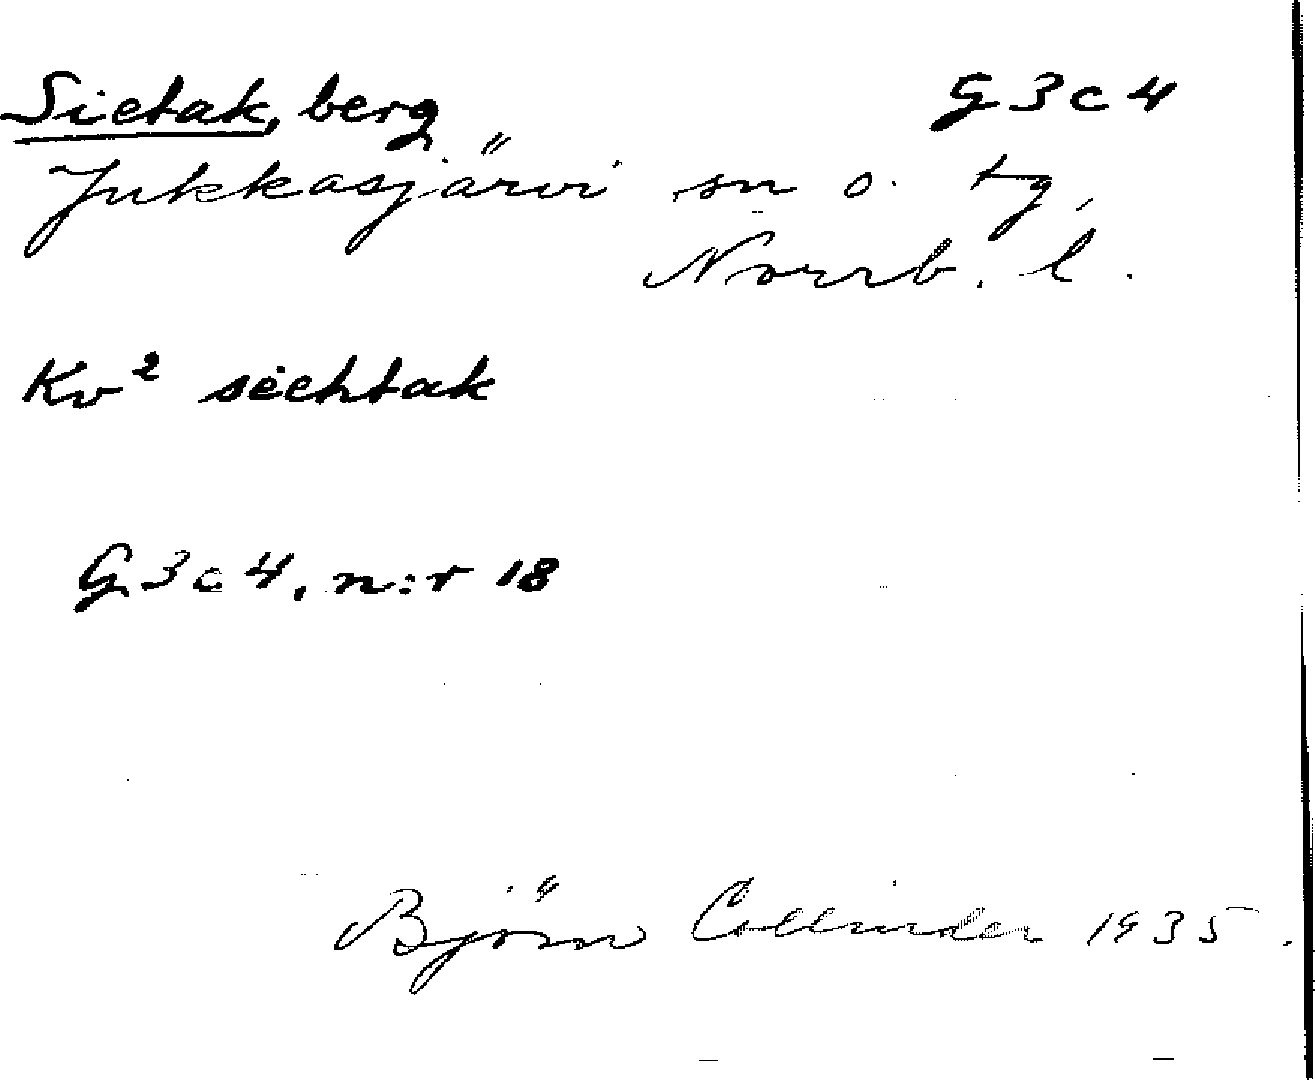 Sietak, berg G3c4
Jukkasjärvi sn o. tg,
Norrb. l.
Kv² siehtak
G3c4, n:r 18
Björn Collinder 1935.